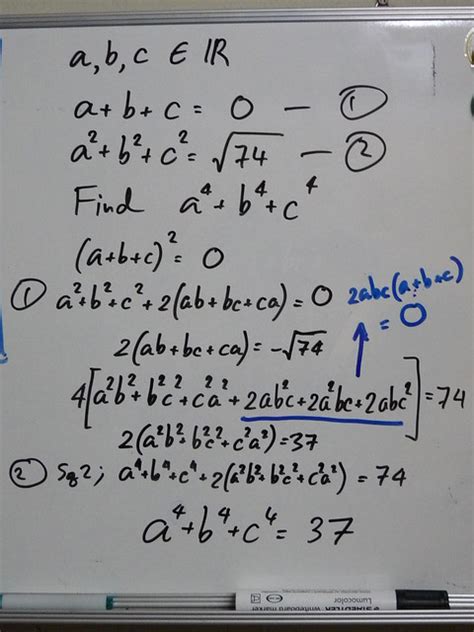 a, b, c ∈ ℝ
a + b + c = 0 — ①
a² + b² + c² = √74 — ②
Find a⁴ + b⁴ + c⁴
(a+b+c)² = 0
① a² + b² + c² + 2(ab+bc+ca) = 0
2abc(a+b+c)
= 0
2(ab+bc+ca) = -√74
4[a²b² + b²c² + c²a² + 2ab²c + 2a²bc + 2abc²] = 74
2(a²b² + b²c² + c²a²) = 37
② Sq 2; a⁴+b⁴+c⁴+2(a²b²+b²c²+c²a²) = 74
a⁴ + b⁴ + c⁴ = 37
STAEDTLER Lumocolor
whiteboard marker